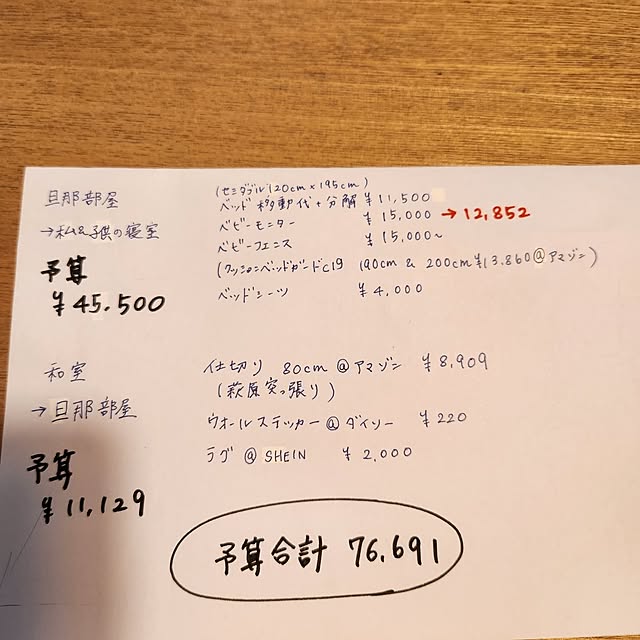 旦那部屋
→私&子供の寝室
予算
¥45.500
(セミダブル120cm×195cm)
ベッド移動代+分解 ¥11,500
ベビーモニター ¥15,000 →12,852
ベビーフェンス ¥15,000~
(クッションベッドガードC19 190cm & 200cm ¥13.860@アマゾン)
ベッドシーツ ¥4,000
和室
→旦那部屋
予算
¥11,129
仕切り 80cm @アマゾン ¥8,909
(萩原突っ張り)
ウオールステッカー@ダイソー ¥220
ラグ@SHEIN ¥2,000
予算合計 76,691